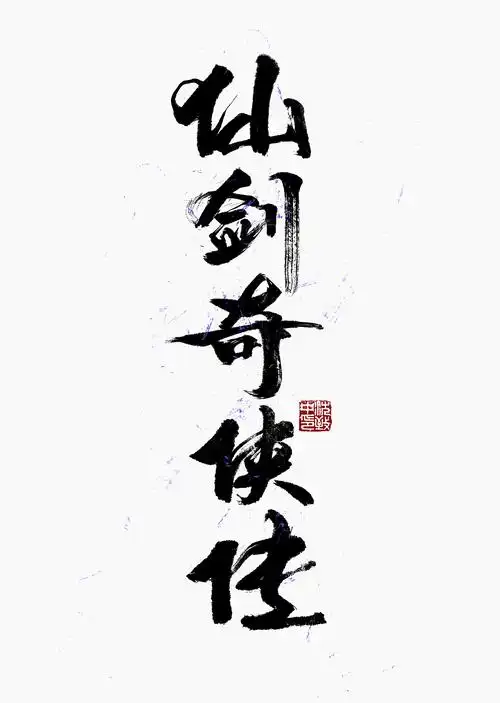 仙剑奇侠传